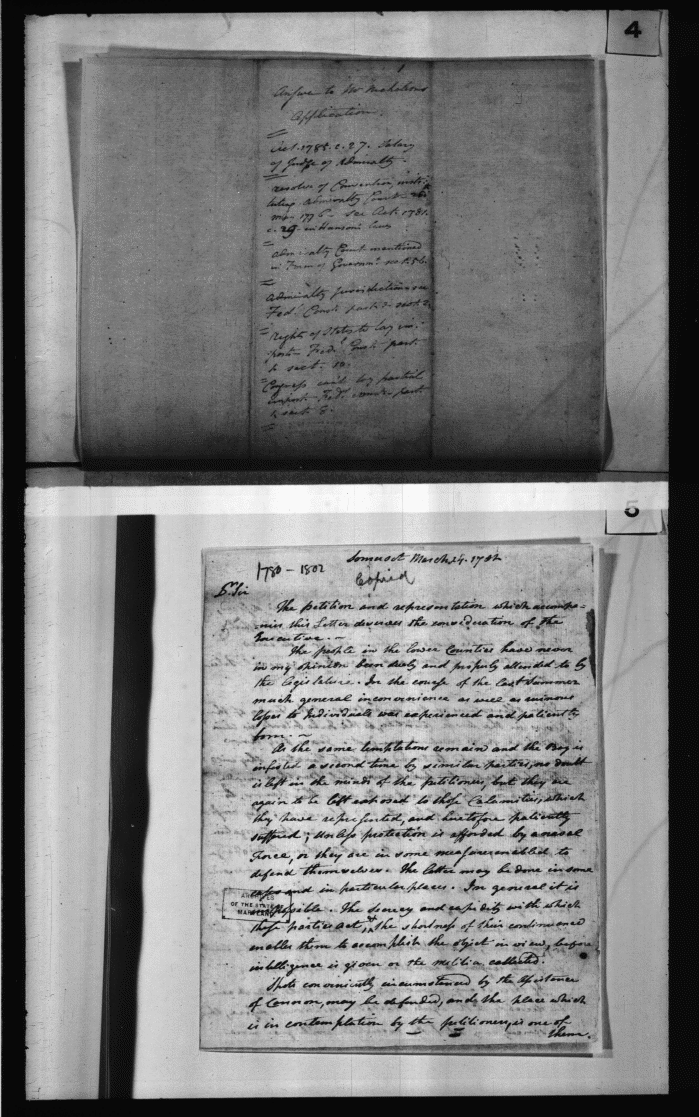 4
Answer to Mr Nicholsons
Application.
Act. 1785. c. 27. Salary
of Judge of Admiralty.
resolve of Convention insti-
tuting Admiralty Court
May 1776. see Act. 1781.
c. 29. in Hanson's Laws
Admiralty Court mentioned
in Form of Governmt sect. 56.
Admiralty jurisdiction see
Fedl. Const. part 3 sect 2
Rights of States to lay im-
post Fedl. Const. part
1. sect. 10.
Congress can't lay partial
impost Fedl const. part
1. sect 8.
5
1780 - 1802
Somerset March 24. 1782
Copied
Dr. Sir
The petition and representation which accompa-
nies this Letter deserves the consideration of the
Executive. ~
The people in the lower Counties have never
in my opinion been duely and properly attended to by
the legislature. In the course of the last Summer
much general inconvenience as well as ruinous
losses to Individuals was experienced and patiently
born. ~
As the same temptations remain and the Bay is
infested a second time by similar parties, no doubt
is left in the minds of the petitioners, but they are
again to be left exposed to those Calamities, which
they have represented, and heretofore patiently
suffered; Unless protection is afforded by a naval
Force, or they are in some measure enabled to
defend themselves. The latter may be done in some
cases and in particular places. In general it is
impossible. The secrecy and rapidity with which
those parties act, & the shortness of their continuance
enables them to accomplish the object in view, before
intelligence is given or the Militia collected.
Spots conveniently circumstanced by the Assistance
of Cannon, may be defended, and the place which
is in contemplation by the petitioners, is one of
them.
ARCHIVES
OF THE STATE OF
MARYLAND